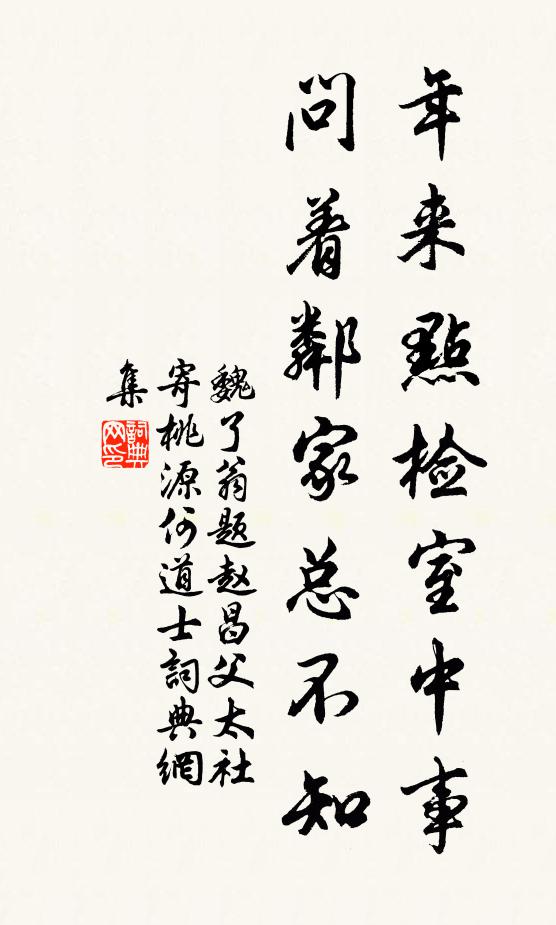 年来點检室中事
問着鄰家总不知
魏了翁题赵昌父太社
寄桃源何道士詞典網
集
詞典
网印